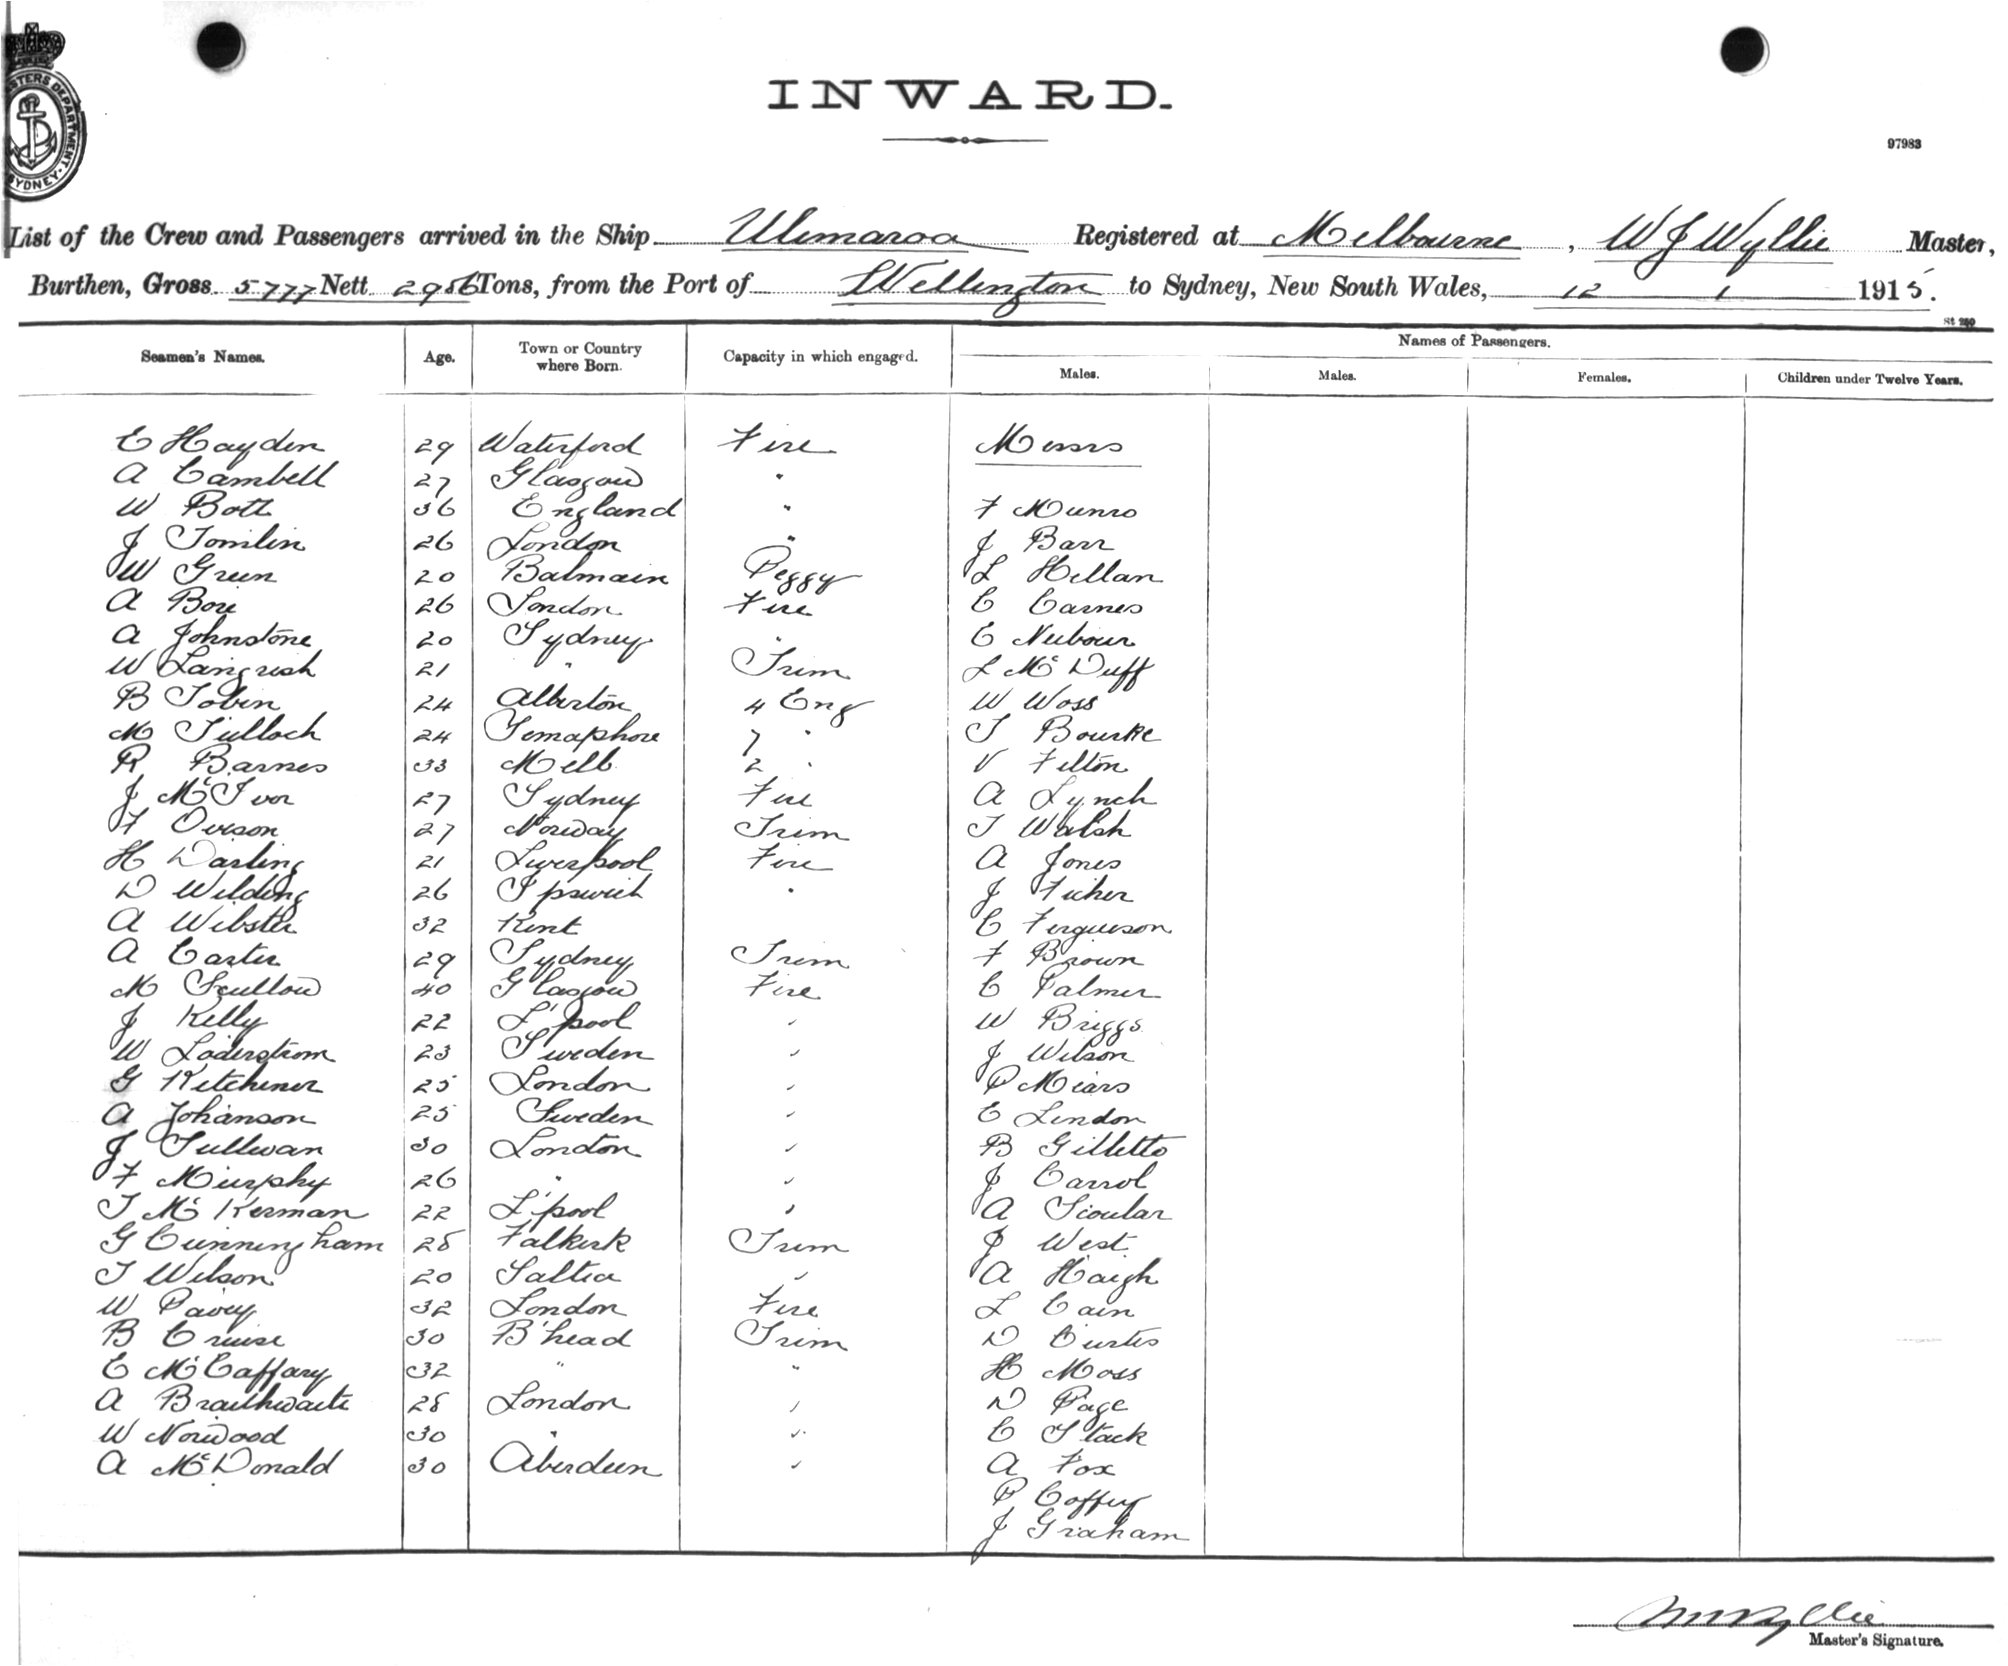 INWARD.
97983
STERS DEPARTMENT. SYDNEY.
List of the Crew and Passengers arrived in the Ship Ulimaroa Registered at Melbourne, W J Wyllie Master,
Burthen, Gross 5777 Nett 2986 Tons, from the Port of Wellington to Sydney, New South Wales, 12 1 1915.
St 280
Seamen's Names. Age. Town or Country where Born. Capacity in which engaged. Names of Passengers.
Males. Males. Females. Children under Twelve Years.
E Hayden 29 Waterford Fire Messrs
A Cambell 27 Glasgow "
W Bott 36 England " F Munro
J Tomlin 26 London " J Barr
W Green 20 Balmain Peggy L Hellan
A Bore 26 London Fire C Carnes
A Johnstone 20 Sydney " E Neubour
W Langrish 21 " Trim L McDuff
B Tobin 24 Alberton 4 Eng W Woss
M Tulloch 24 Semaphore 7 " T Bourke
R Barnes 33 Melb 2 " V Felton
J McIvor 27 Sydney Fire A Lynch
F Overson 27 Norway Trim T Walsh
H Darling 21 Liverpool Fire A Jones
D Wilding 26 Ipswich " J Ficher
A Webster 32 Kent C Ferguson
A Carter 29 Sydney Trim F Brown
M Scullow 40 Glasgow Fire C Palmer
J Kelly 22 L'pool " W Briggs
W Loderstrom 23 Sweden " J Wilson
G Kitchener 25 London " P Mears
A Johanson 25 Sweden " E Lendon
J Sullivan 30 London " B Gilletto
F Murphy 26 " " J Carrol
T McKerman 22 L'pool " A Scoular
G Cunningham 28 Falkirk Trim J West
T Wilson 20 Saltea " A Haigh
W Pavey 32 London Fire L Cain
B Cruise 30 B'head Trim D Curtis
E McCaffary 32 " " H Moss
A Braithwaite 28 London " D Page
W Norwood 30 " " C Stack
A McDonald 30 Aberdeen " A Fox
P Coffey
J Graham
W J Wyllie
Master's Signature.